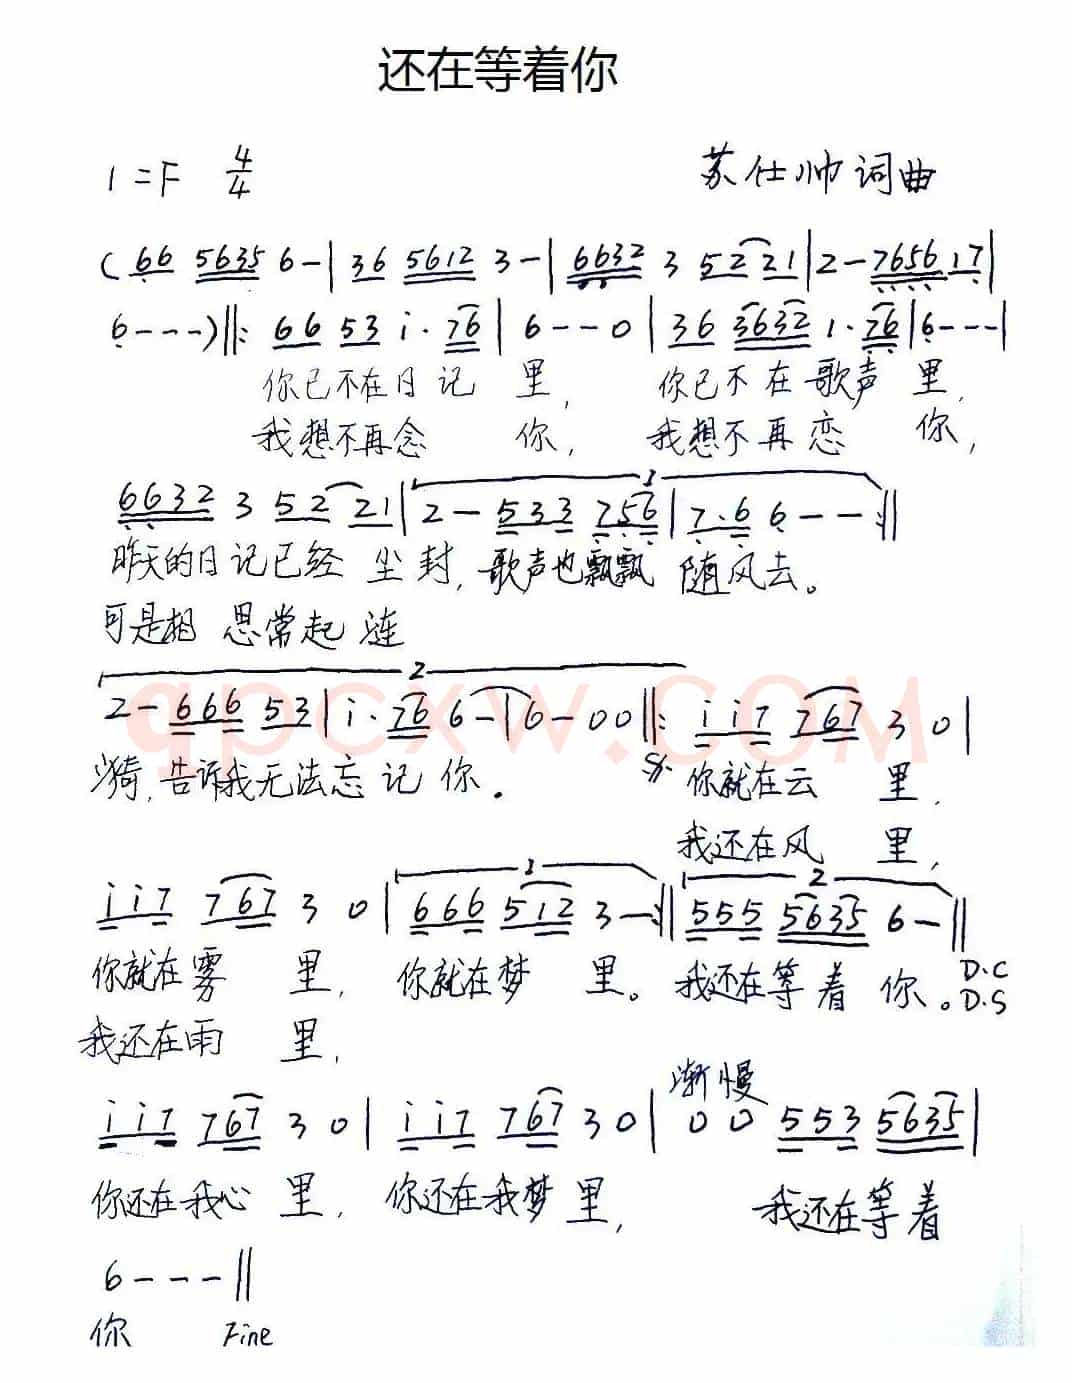 还在等着你
1=F 4/4 苏仕帅词曲
( 66 5635 6 - | 36 5612 3 - | 6632 3 52 21 | 2 - 7656 17 |
6 - - - ) ‖: 66 53 i · 76 | 6 - - 0 | 36 3632 1 · 76 | 6 - - - |
你已不在日记 里, 你已不在歌声 里,
我想不再念 你, 我想不再恋 你,
6632 3 52 21 | 1 2 - 533 756 | 7 · 6 6 - - :‖
昨天的日记已经 尘封, 歌声也飘飘 随风去。
可是相 思常起 涟
2
2 - 666 53 | i · 76 6 - | 6 - 00 ‖: i i7 767 3 0 |
漪, 告诉我无法忘 记 你. 𝄋 你就在云 里,
我还在风 里,
i i7 767 3 0 | 1 666 512 3 - :‖ 2 555 5635 6 - ‖
你就在雾 里, 你就在梦 里。 我还在等着 你。 D.C
D.S
我还在雨 里,
渐慢
i i7 767 3 0 | i i7 767 3 0 | 0 0 553 5635 |
你还在我心 里, 你还在我梦 里, 我还在等着
6 - - - ‖
你 Fine
qpcxw.COM